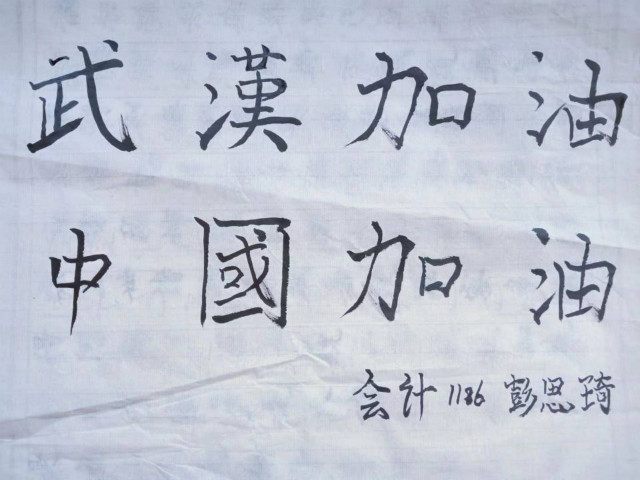 武漢加油
中國加油
会计1186 彭思琦